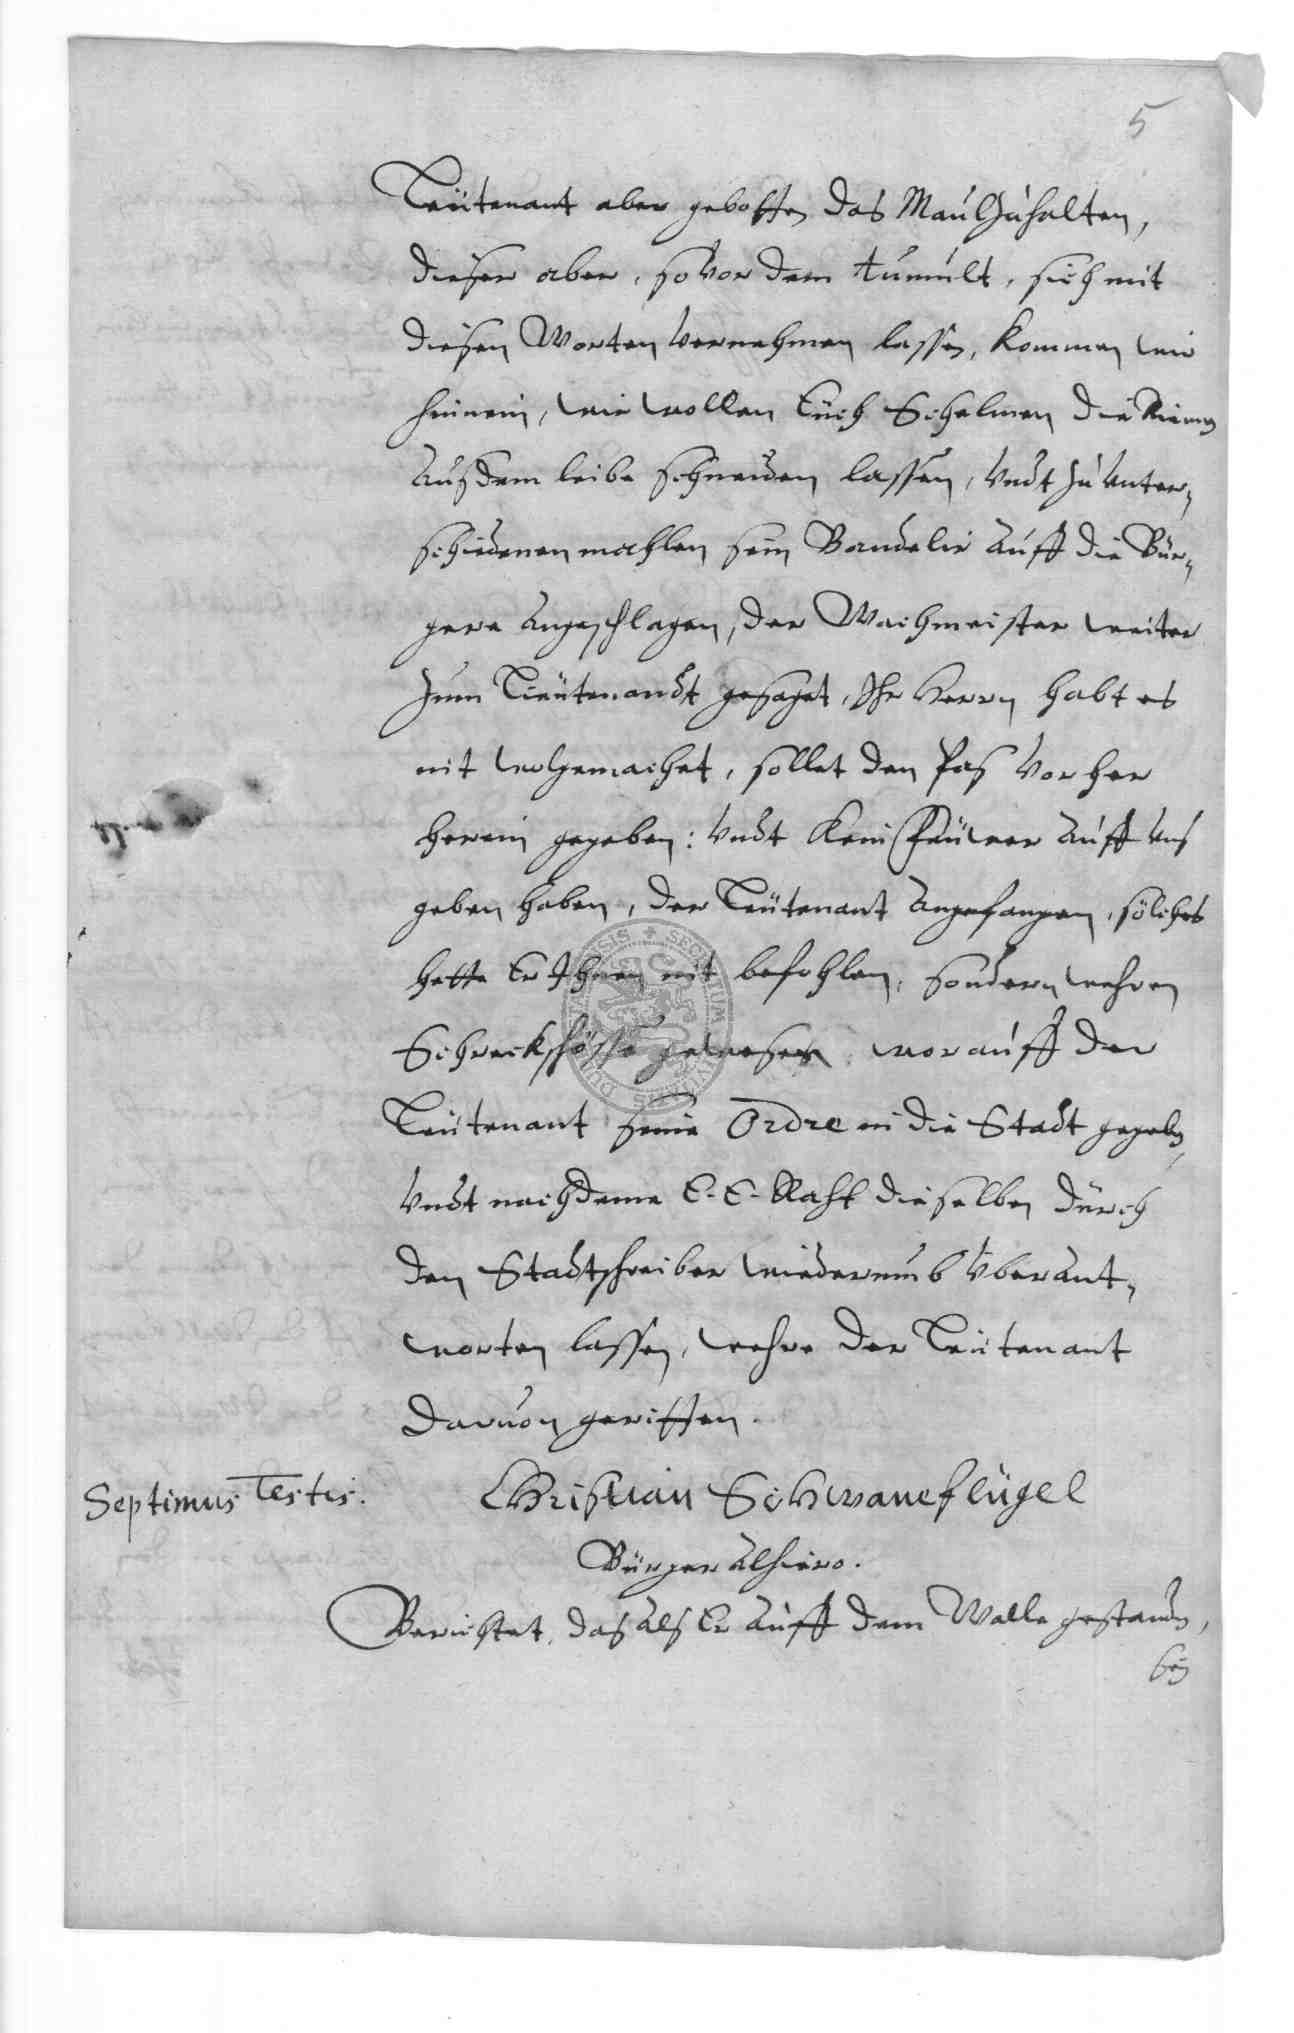 5
Leütenant aber gebotten das Maul Zuhalten,
dieser aber, so vor dem tumult, sich mit
diesen Worten vernehmen lassen, Kommen wir
hinnein, wir wollen Eüch Schelmen die Riemen
Auß dem leibe schneiden lassen, Vndt zu unter„
schiedenen mahlen sein Bandelir Auff die Bür„
gere Angeschlagen, der Wachmeister weiter
zum Lieütenandt gesaget, Ihr Herrn habt es
nit wolgemachet, sollet den Paß Vorher
herein gegeben: Vndt Kein Feüwer Auff Uns
geben haben, der Leütenant Angefangen, solches
hette Er Ihnen nit befohlen, sondern wehren
Schreckschösse gewesen, worauff der
Leütenant seine Ordre in die Stadt gegeben,
Vndt nachdeme E. E. Raht dieselben durch
den Stadtschreiber wiederumb Uberant„
worten lassen, wehre der Leütenant
dauon geritten.
Septimus Testis. Christian Schwaneflügel
Bürger Alhiero.
Berichtet, daß Alß Er Auff dem Walle gestanden,
bey
SECRETUM